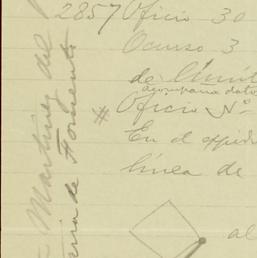 2857 Oficio 30
Ocurso 3
de límit
acompaña dato
# Oficio Nº
En el expedi
línea de
al
Martínez del
de Fomento